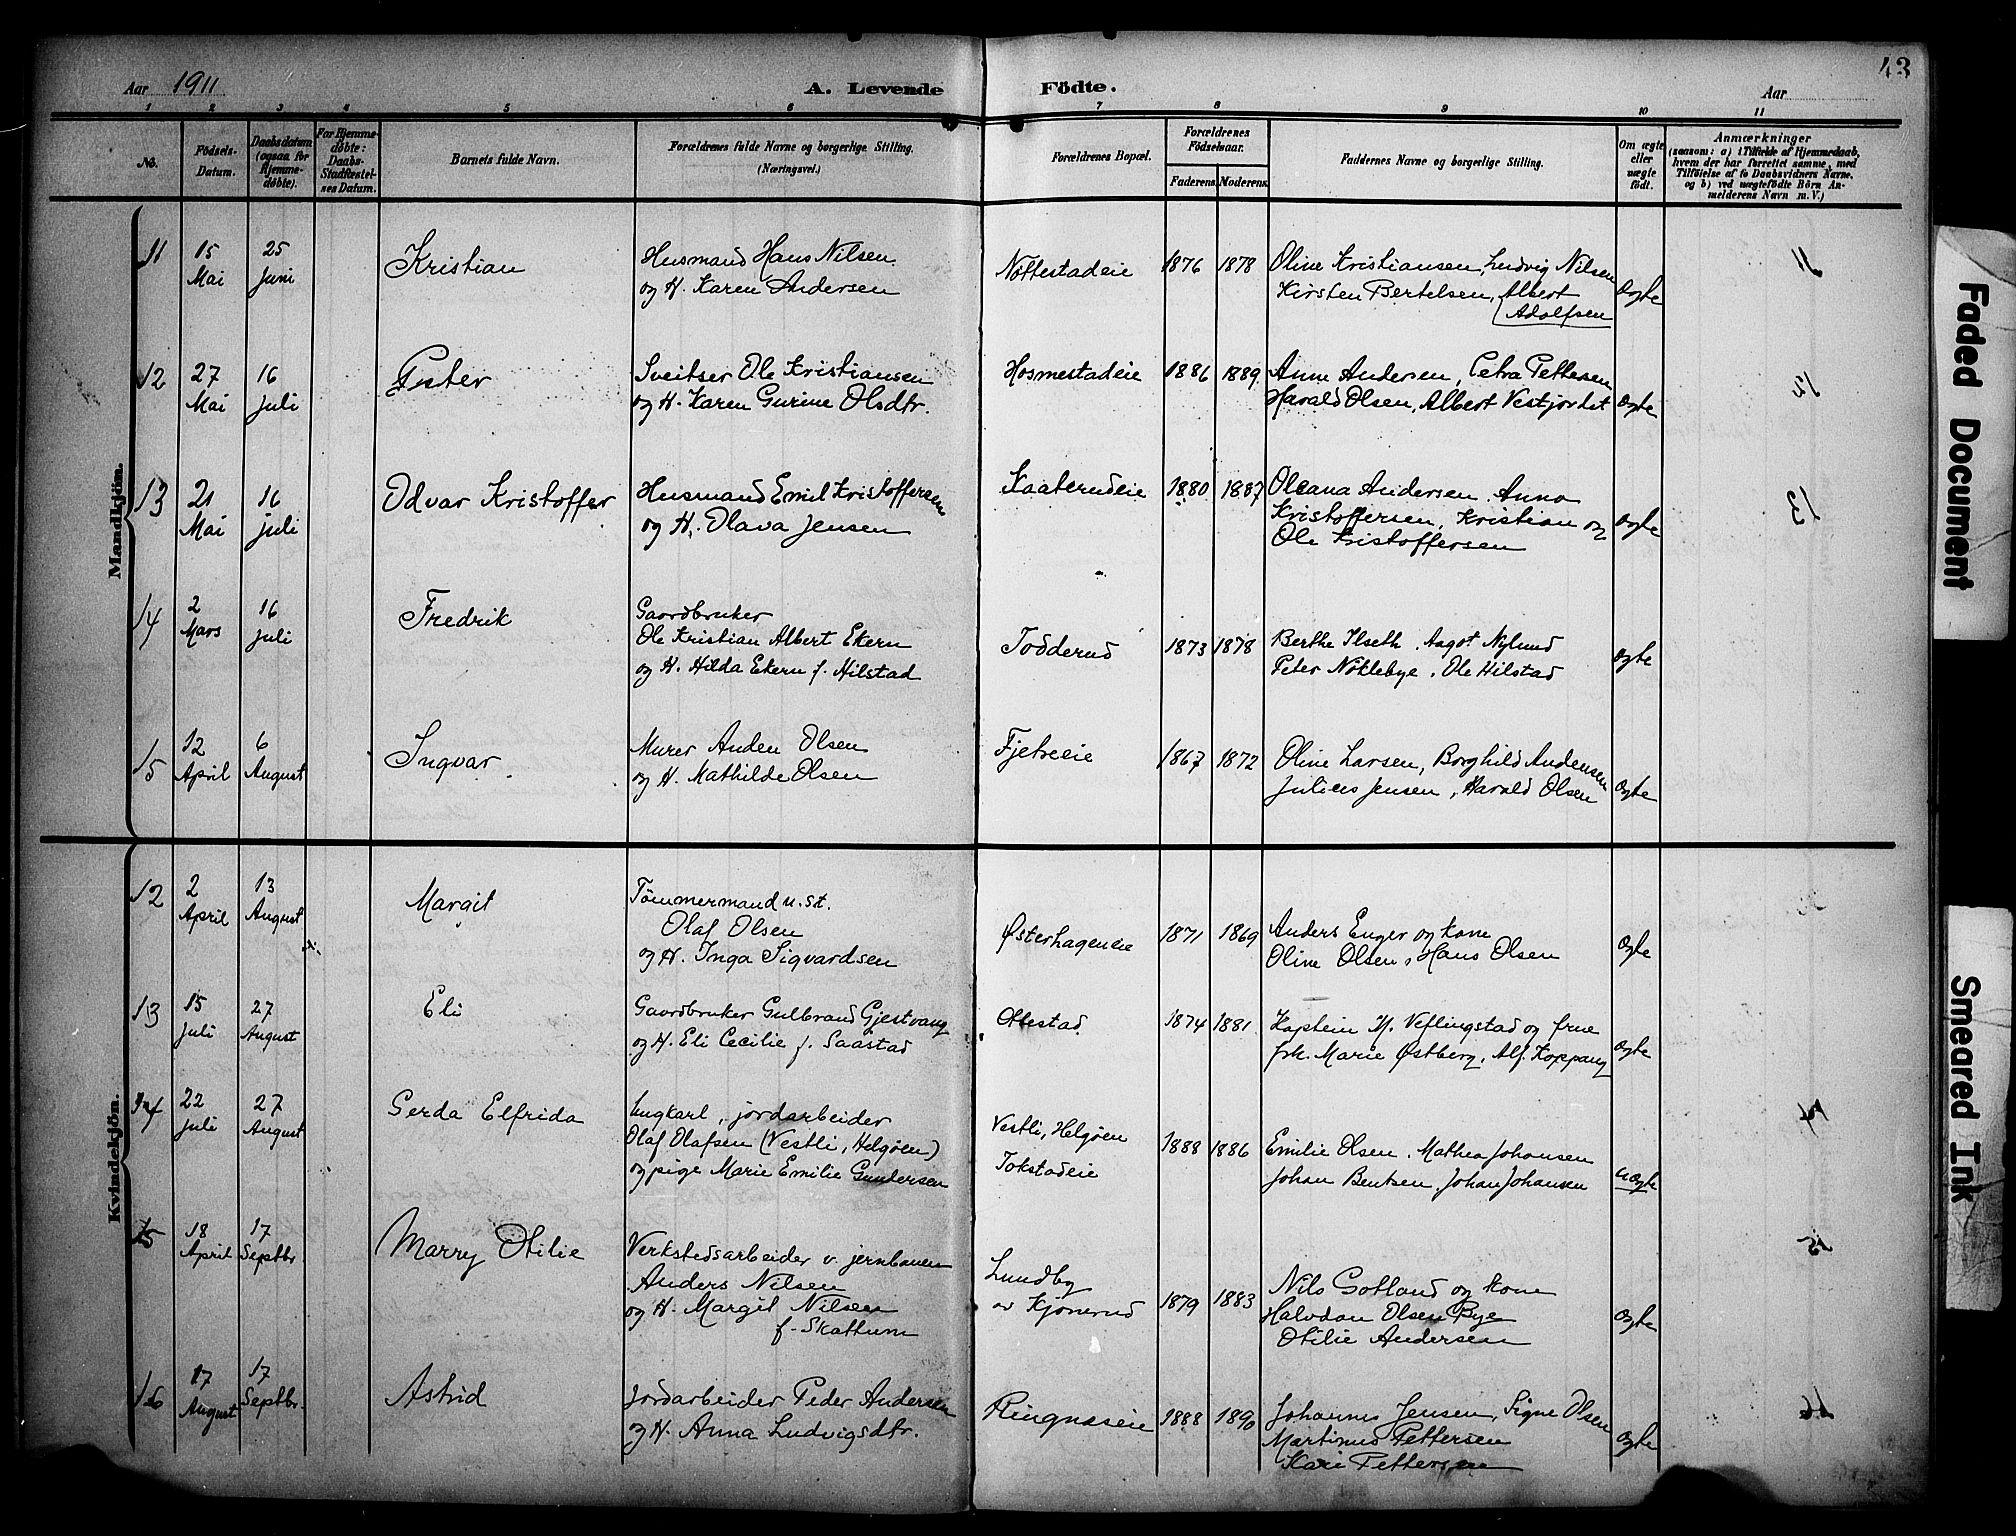 Aar 1911
A. Levende Födte.
Aar
43
1 2 3 4 5 6 7 8 9 10 11
No.
Födsels-
Datum.
Daabsdatum
(ogsaa for
Hjemme-
döbte).
For Hjemme-
döbte:
Daabs-
Stadfæstel-
ses Datum.
Barnets fulde Navn.
Forældrenes fulde Navne og borgerlige Stilling.
(Næringsvei.)
Forældrenes Bopæl.
Forældrenes
Födselsaar.
Faderens. Moderens.
Faddernes Navne og borgerlige Stilling.
Om ægte
eller
uægte
födt.
Anmærkninger
(saasom: a) i Tilfælde af Hjemmedaab,
hvem der har forrettet samme, med
Tilföielse af to Daabsvidners Navne,
og b) ved uægtefödte Börn An-
melderens Navn m. V.)
Mandkjön.
11 15 Mai 25 Juni Kristian
Husmand Hans Nilsen
og H. Karen Andersen
Nøttestadeie 1876 1878
Oline Kristiansen, Ludvig Nilsen
Kirsten Bertelsen, Albert
Adolfsen
Ægte
12 27 Mai 16 Juli Peter
Sveitser Ole Kristiansen
og H. Karen Gurine Olsdtr.
Hosmestadeie 1886 1889
Anne Andersen, Petra Pettersen
Harald Olsen, Albert Vestjordet
Ægte
13 21 Mai 16 Juli Odvar Kristoffer
Husmand Emil Kristoffersen
og H. Olava Jensen
Kaaterudeie 1880 1887
Oleana Andersen. Anna
Kristoffersen, Kristian og
Ole Kristoffersen
Ægte
14 2 Mars 16 Juli Fredrik
Gaardbruker
Ole Kristian Albert Ekern
og H. Hilda Ekern f. Hilstad
Todderud 1873 1878
Berthe Ilseth. Aagot Nylund
Peter Nøklebye. Ole Hilstad
Ægte
15 12 April 6 August Ingvar
Murer Anden Olsen
og H. Mathilde Olsen
Fjetreeie 1867 1872
Oline Larsen, Borghild Andensen
Julius Jensen, Harald Olsen
Ægte
Kvindekjön.
12 2 April 13 August Margit
Tömmermand u. st.
Olaf Olsen
og H. Inga Sigvardsen
Østerhageneie 1871 1869
Anders Enger og kone
Oline Olsen, Hans Olsen
Ægte
13 15 Juli 27 August Eli
Gaardbruker Gulbrand Gjestvang
og H. Eli Cecilie f. Saastad
Ottestad 1874 1881
Kaptein M. Veflingstad og frue
Frk. Marie Østberg, Alf. Koppang
Ægte
14 22 Juli 27 August Gerda Elfrida
Ungkarl, jordarbeider
Olaf Olafsen (Vestli, Helgøen)
og pige Marie Emilie Gundersen
Vestli, Helgøen
Tokstadeie
1888 1886
Emilie Olsen. Mathea Johansen
Johan Bentsen. Johan Johansen
uægte
15 18 April 17 Septbr. Marry Otilie
Verkstedsarbeider v. jernbanen
Anders Nilsen
og H. Margit Nilsen
f. Skattum
Lundby
av Kjonerud
1879 1883
Nils Gotland og kone
Halvdan Olsen Bye
Otilie Andersen
Ægte
16 17 August 17 Septbr. Astrid
Jordarbeider Peder Andersen
og H. Anna Ludvigsdtr.
Ringnæseie 1888 1890
Johannes Jensen, Signe Olsen
Martinus Pettersen
Kari Pettersen
Ægte
11
12
13
14
15
16
Faded Document
Smeared Ink